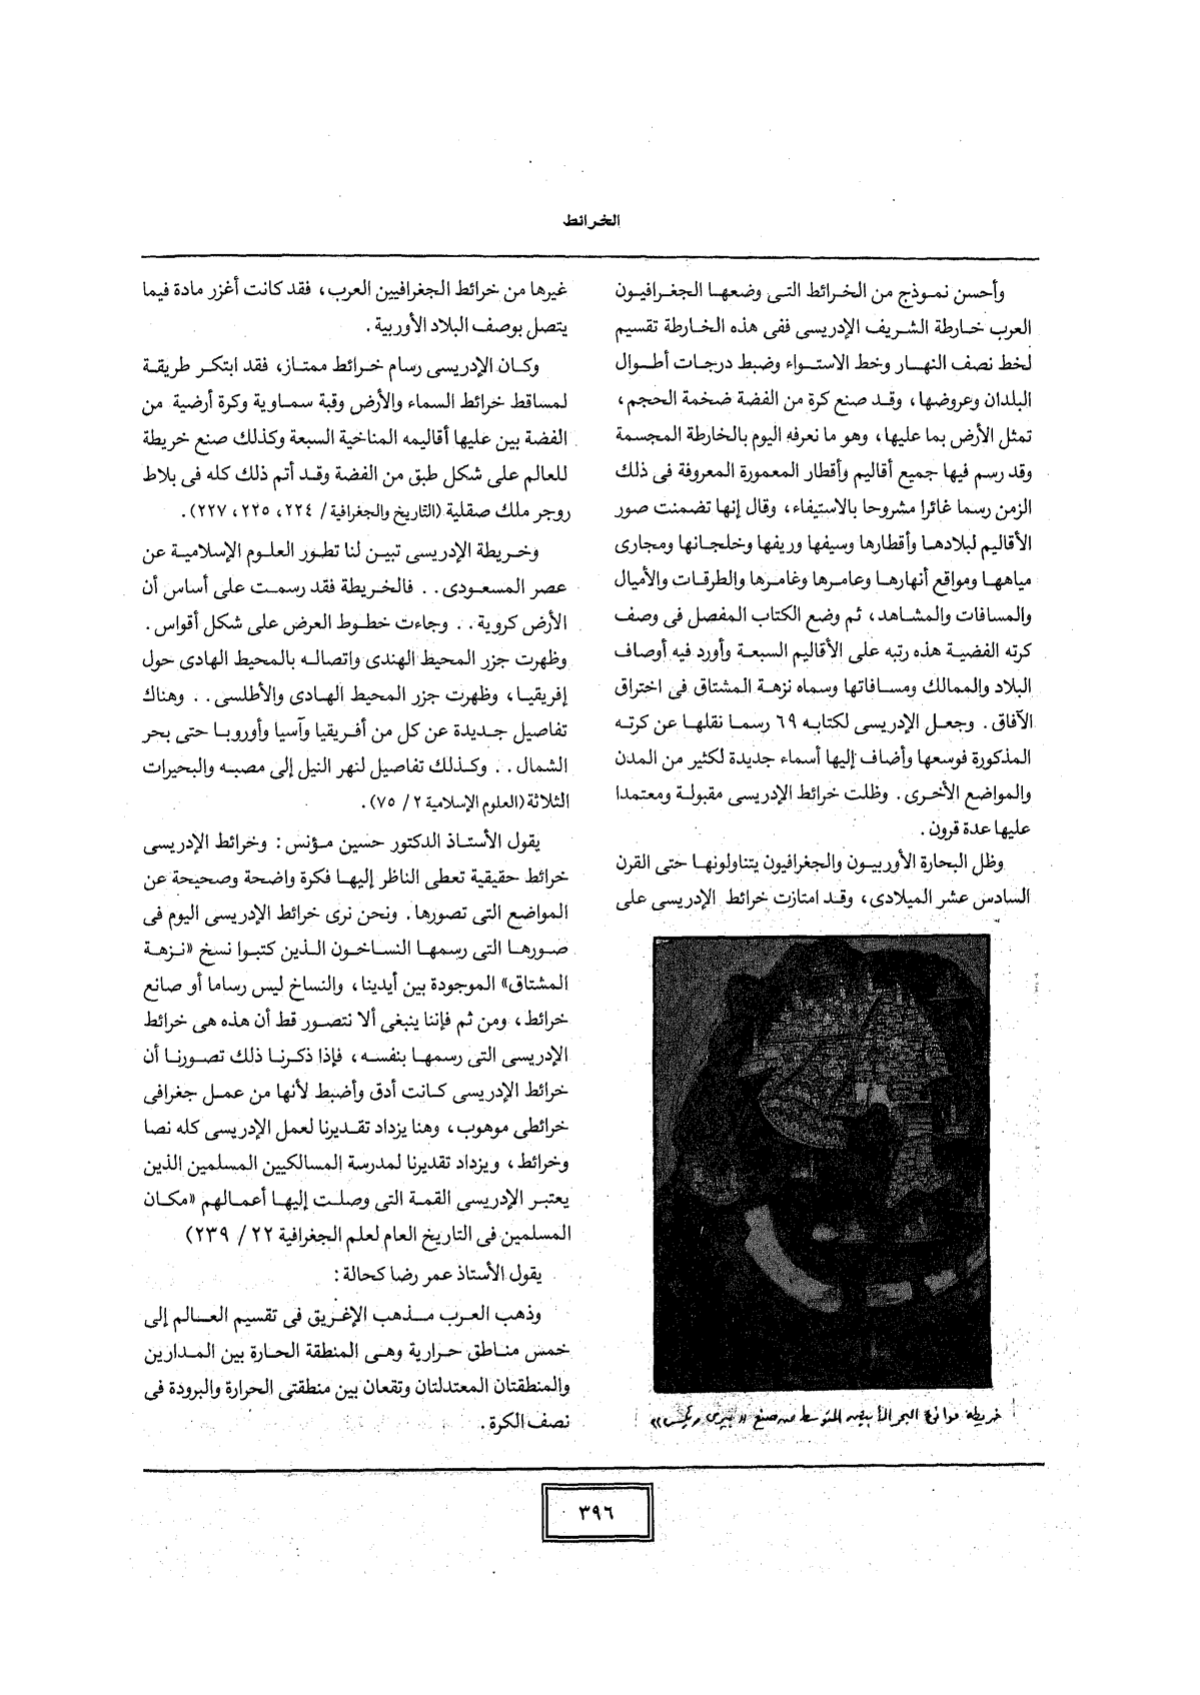 الخرائط
وأحسن نموذج من الخرائط التى وضعها الجغرافيون
العرب خارطة الشريف الإدريسى ففى هذه الخارطة تقسيم
لخط نصف النهار وخط الاستواء وضبط درجات أطوال
البلدان وعروضها، وقد صنع كرة من الفضة ضخمة الحجم،
تمثل الأرض بما عليها، وهو ما نعرفه اليوم بالخارطة المجسمة
وقد رسم فيها جميع أقاليم وأقطار المعمورة المعروفة فى ذلك
الزمن رسما غائرا مشروحا بالاستيفاء، وقال إنها تضمنت صور
الأقاليم لبلادها وأقطارها وسيفها وريفها وخلجانها ومجارى
مياهها ومواقع أنهارها وعامرها وغامرها والطرقات والأميال
والمسافات والمشاهد، ثم وضع الكتاب المفصل فى وصف
كرته الفضية هذه رتبه على الأقاليم السبعة وأورد فيه أوصاف
البلاد والممالك ومسافاتها وسماه نزهة المشتاق فى اختراق
الآفاق. وجعل الإدريسى لكتابه ٦٩ رسما نقلها عن كرته
المذكورة فوسعها وأضاف إليها أسماء جديدة لكثير من المدن
والمواضع الأخرى. وظلت خرائط الإدريسى مقبولة ومعتمدا
عليها عدة قرون.
وظل البحارة الأوربيون والجغرافيون يتناولونها حتى القرن
السادس عشر الميلادى، وقد امتازت خرائط الإدريسى على
خريطة موانئ البحر الأبيض المتوسط من صنع «بيرى رئيس»
غيرها من خرائط الجغرافيين العرب، فقد كانت أغزر مادة فيما
يتصل بوصف البلاد الأوربية.
وكان الإدريسى رسام خرائط ممتاز، فقد ابتكر طريقة
لمساقط خرائط السماء والأرض وقبة سماوية وكرة أرضية من
الفضة بين عليها أقاليمه المناخية السبعة وكذلك صنع خريطة
للعالم على شكل طبق من الفضة وقد أتم ذلك كله فى بلاط
روجر ملك صقلية (التاريخ والجغرافية / ٢٢٤، ٢٢٥، ٢٢٧).
وخريطة الإدريسى تبين لنا تطور العلوم الإسلامية عن
عصر المسعودى.. فالخريطة فقد رسمت على أساس أن
الأرض كروية.. وجاءت خطوط العرض على شكل أقواس.
وظهرت جزر المحيط الهندى واتصاله بالمحيط الهادى حول
إفريقيا، وظهرت جزر المحيط الهادى والأطلسى.. وهناك
تفاصيل جديدة عن كل من أفريقيا وآسيا وأوروبا حتى بحر
الشمال.. وكذلك تفاصيل لنهر النيل إلى مصبه والبحيرات
الثلاثة (العلوم الإسلامية ٢ / ٧٥).
يقول الأستاذ الدكتور حسين مؤنس: وخرائط الإدريسى
خرائط حقيقية تعطى الناظر إليها فكرة واضحة وصحيحة عن
المواضع التى تصورها. ونحن نرى خرائط الإدريسى اليوم فى
صورها التى رسمها النساخون الذين كتبوا نسخ «نزهة
المشتاق» الموجودة بين أيدينا، والنساخ ليس رساما أو صانع
خرائط، ومن ثم فإننا ينبغى ألا نتصور قط أن هذه هى خرائط
الإدريسى التى رسمها بنفسه، فإذا ذكرنا ذلك تصورنا أن
خرائط الإدريسى كانت أدق وأضبط لأنها من عمل جغرافى
خرائطى موهوب، وهنا يزداد تقديرنا لعمل الإدريسى كله نصا
وخرائط، ويزداد تقديرنا لمدرسة المسالكيين المسلمين الذين
يعتبر الإدريسى القمة التى وصلت إليها أعمالهم «مكان
المسلمين فى التاريخ العام لعلم الجغرافية ٢٢ / ٢٣٩)
يقول الأستاذ عمر رضا كحالة:
وذهب العرب مذهب الإغريق فى تقسيم العالم إلى
خمس مناطق حرارية وهى المنطقة الحارة بين المدارين
والمنطقتان المعتدلتان وتقعان بين منطقتى الحرارة والبرودة فى
نصف الكرة.
٣٩٦